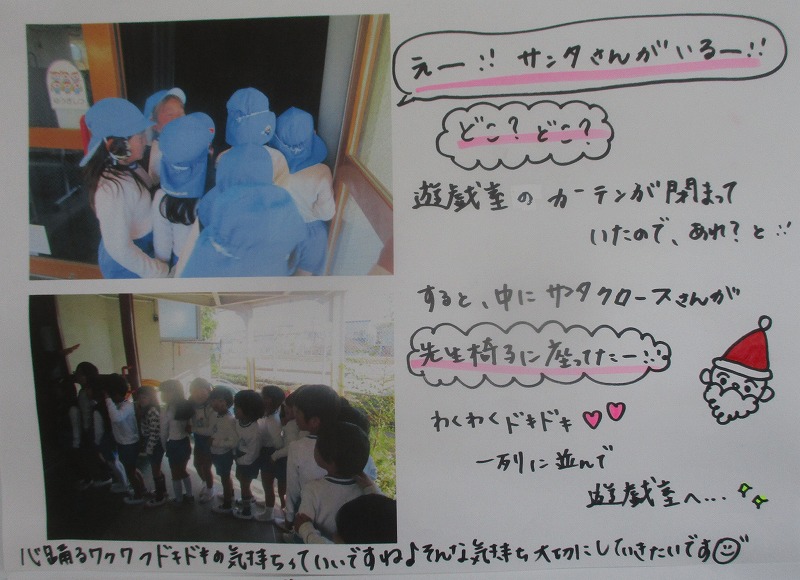 えー!! サンタさんがいるー!!
どこ? どこ?
遊戯室のカーテンが閉まって
いたので、あれ?と!!
すると、中にサンタクロースさんが
先生椅子に座ってたー!!
わくわくドキドキ
一列に並んで
遊戯室へ...
心踊るワクワクドキドキの気持ちっていいですねよそんな気持ち大切にしていきたいです